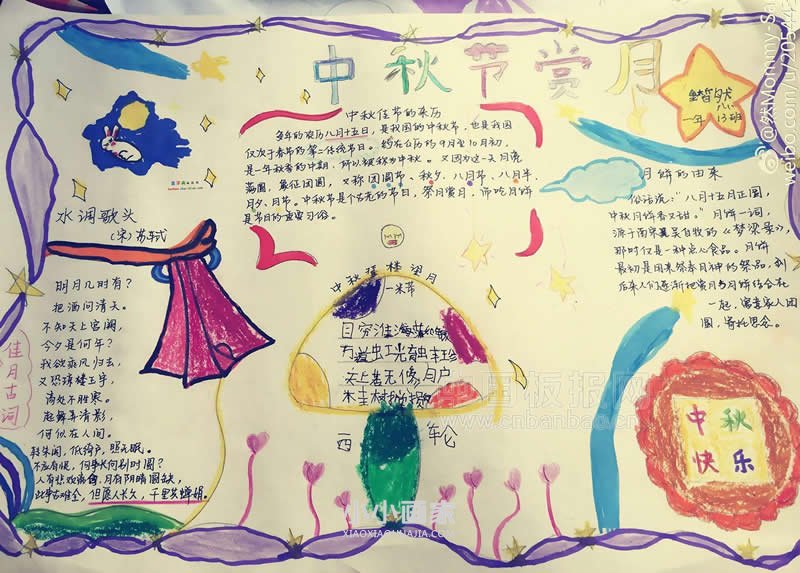 中秋节赏月
一年 13班
中秋佳节的来历
每年的农历八月十五日,是我国的中秋节,也是我国
仅次于春节的第二传统节日。约在公历的9月至10月初,
是一年秋季的中期,所以被称为中秋。又因为这一天月亮
满圆,象征团圆,又称团圆节、秋夕、八月节、八月半、
月夕、月节。中秋节是个古老的节日,祭月赏月,
是节日的重要习俗。
月饼的由来
俗话说:“八月十五月正圆,
中秋月饼香又甜。”月饼一词,
源于南宋吴自牧的《梦梁录》,
那时仅是一种点心食品。月饼
最初是用来祭奉月神的祭品,到
后来人们逐渐把赏月与月饼结合在
一起,寓意家人团
圆,寄托思念。
水调歌头
(宋)苏轼
明月几时有?
把酒问清天。
不知天上宫阙,
今夕是何年?
我欲乘风归去,
又恐琼楼玉宇,
高处不胜寒。
起舞弄清影,
何似在人间。
转朱阁,低绮户,照无眠。
不应有恨,何事长向别时圆?
人有悲欢离合,月有阴晴圆缺,
此事古难全,但愿人长久,千里共婵娟。
佳月古词
中秋登楼望月
米芾
目穷淮海
中秋
快乐
中国板报网
www.cnbanbao.cn
小小画家
XIAOXIAOHUAJIA.COM
@然Mommy-Sa